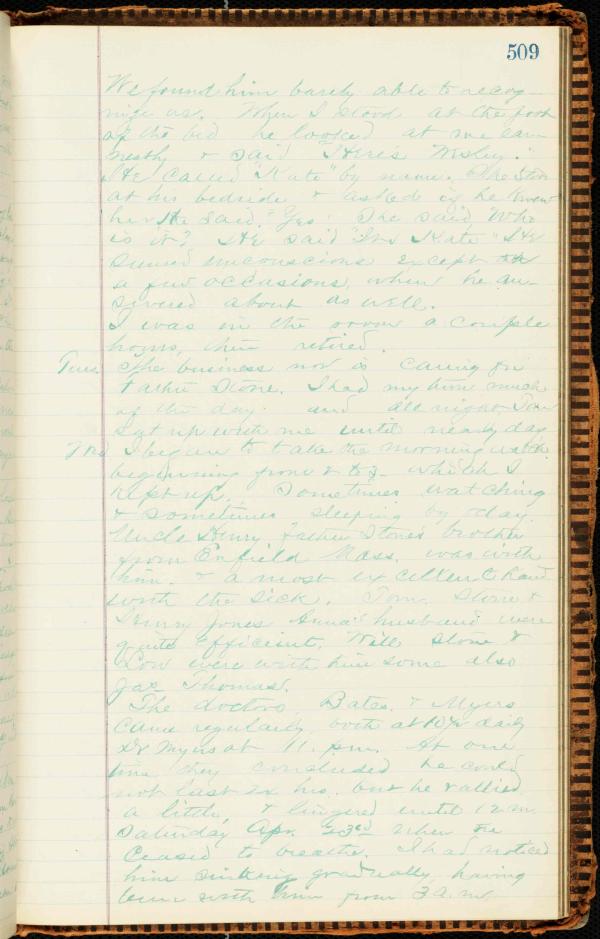 509
We found him barely able to recog-
nize us. When I stood at the foot
of the bed he looked at me ear-
nestly & said "Here's Wesley."
He called "Kate" by name. She stood
at his bedside & asked if he knew
her. He said "Yes". She said "Who
is it?" He said "It's Kate" He
seemed unconscious except on
a few occasions, when he an-
swered about as well.
I was in the room a couple
hours, then retired.
Tues The business now is caring for
Father Stone. I had my turn much
of the day and all night. Tom
sat up with me until nearly day
Wed I began to take the morning watch
beginning from 2 to 3 which I
kept up. Sometimes watching
& sometimes sleeping by day.
Uncle Henry Father Stone's brother
from Enfield Mass. was with
him. & a most excellent hand
with the sick. Tom Stone &
Henry Jones Anna's husband were
quite efficient. Will Stone &
Lon were with him some also
Jas Thomas.
The doctors, Bates & Myers
came regularly, both at 10 daily
Dr Myers at 11. p.m. At one
time they concluded he could
not last six hrs. but he rallied
a little, & lingered until 12 m.
Saturday Apr. 23ed when he
ceased to breathe. I had noticed
him sinking gradually, having
been with him from 3 a.m.